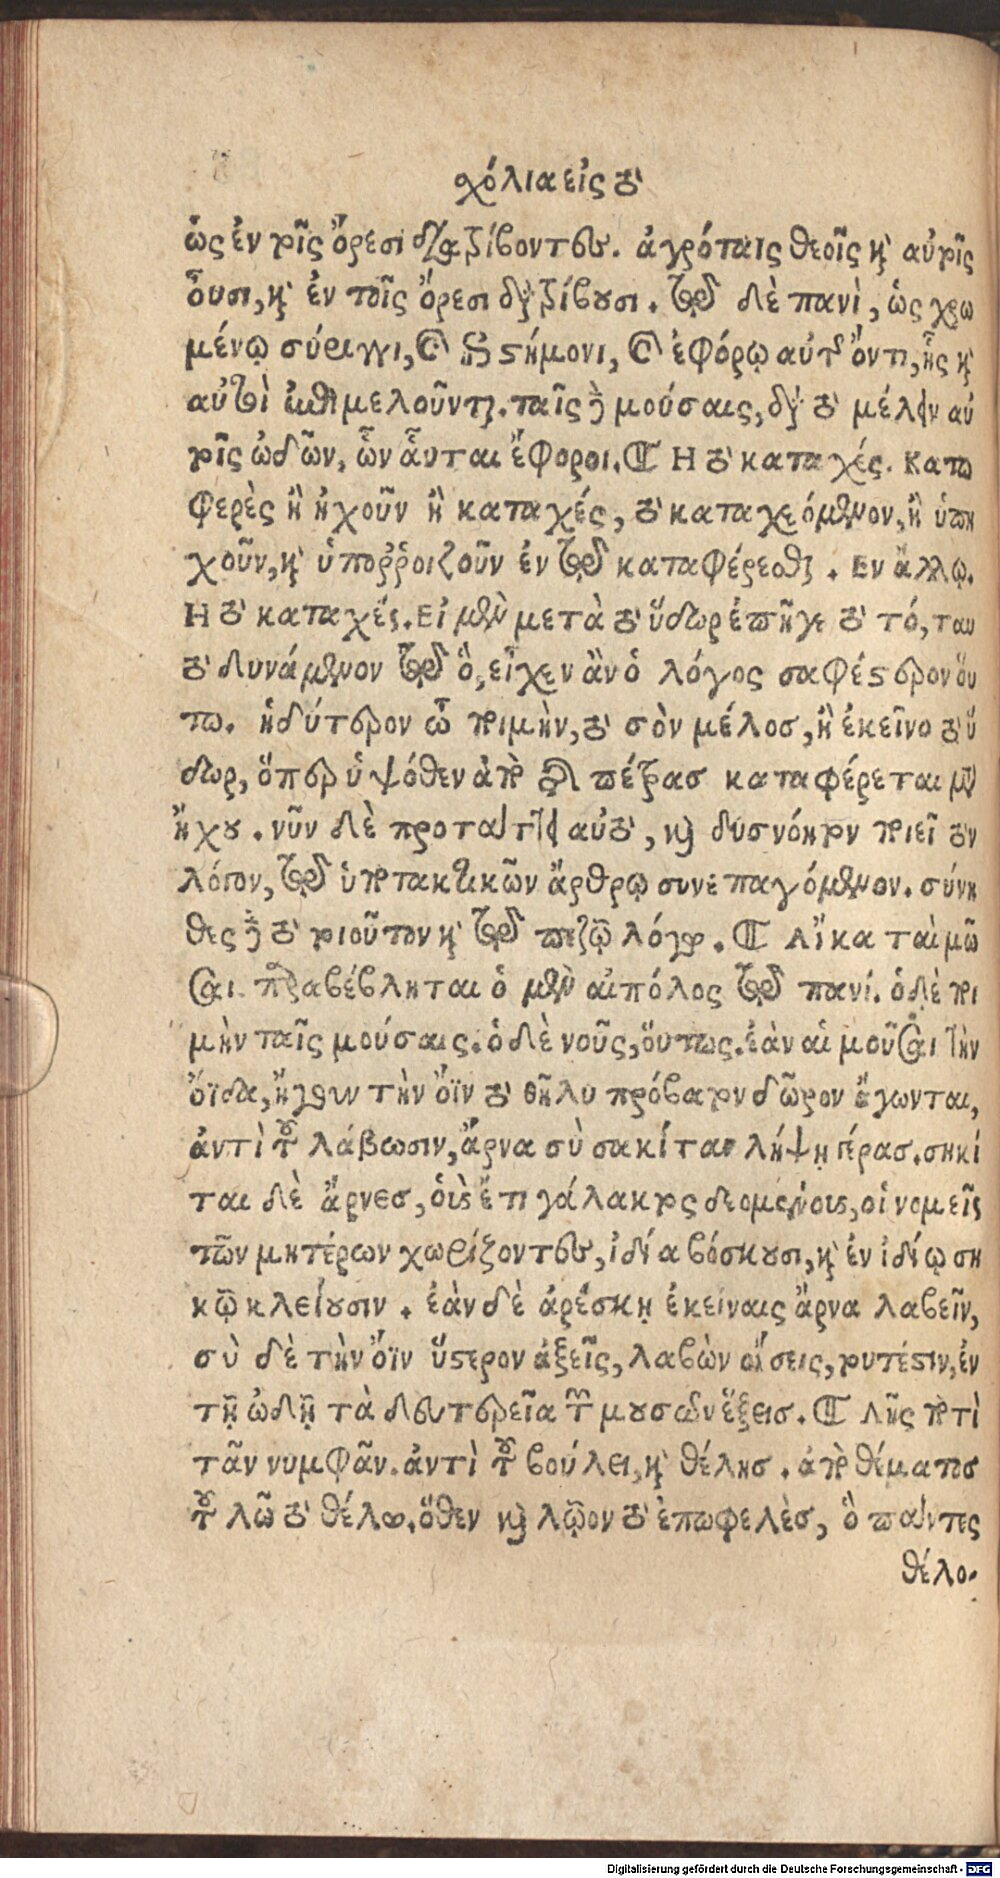 σχόλια εἰς τὸ
ὡς ἐν τοῖς ὄρεσι διατρίβοντες. ἀγρόταις θεοῖς καὶ αὐτοῖς
οὖσι, καὶ ἐν τοῖς ὄρεσι διατρίβουσι. τῷ δὲ πανὶ, ὡς χρω
μένῳ σύριγγι, καὶ ἐπιστήμονι, καὶ ἐφόρῳ αὐτῆς ὄντι, ἧς καὶ
αὐτοὶ ἐπιμελοῦνται. ταῖς δὲ μούσαις, διὰ τὸ μέλειν αὐ
τοῖς ᾠδῶν, ὧν αὗται ἔφοροι. Η τὸ καταχές. Κατω
φερὲς ἢ ἠχοῦν ἢ καταχές, τὸ καταχεόμενον, ἢ ὑπη
χοῦν, καὶ ὑπορῤοιζοῦν ἐν τῷ καταφέρεσθαι. Εν ἄλλῳ.
Η τὸ καταχές. Εἰ μὲν μετὰ τὸ ὕδωρ ἐπῆγε τὸ τό, ταυ
τὸ δυνάμενον τῷ ὃ, εἶχεν ἂν ὁ λόγος σαφέστερον οὕ
τω. ἡδύτερον ὦ ποιμὴν, τὸ σὸν μέλοσ, ἢ ἐκεῖνο τὸ ὕ
δωρ, ὅπερ ὑψόθεν ἀπὸ τῆς πέτρασ καταφέρεται μετ
ἤχου. νῦν δὲ προταχθὲν αὐτὸ, καὶ δυσνόητον ποιεῖ τὸν
λόγον, τῷ ὑποτακτικῶν ἄρθρῳ συνεπαγόμενον. σύνη
θες δὲ τὸ τοιοῦτον καὶ τῷ πεζῷ λόγῳ. Αἴκα ταὶ μῶ
σαι. παραβέβληται ὁ μὲν αἰπόλος τῷ πανί. ὁ δὲ ποι
μὴν ταῖς μούσαις. ὁ δὲ νοῦς, οὕτως. ἐὰν αἱ μοῦσαι τὴν
ὄϊδα, ἤγουν τὴν ὄϊν τὸ θῆλυ πρόβατον δῶρον ἄγωνται,
ἀντὶ τοῦ λάβωσιν, ἄρνα σὺ σακίταν λήψῃ γέρασ. σηκί
ται δὲ ἄρνεσ, οὓς ἔτι γάλακτος δεομένους, οἱ νομεῖς
τῶν μητέρων χωρίζοντες, ἰδίᾳ βόσκουσι, καὶ ἐν ἰδίῳ ση
κῷ κλείουσιν. ἐὰν δὲ ἀρέσκῃ ἐκείναις ἄρνα λαβεῖν,
σὺ δὲ τὴν ὄϊν ὕστερον ἀξεῖς, λαβὼν οἴσεις, τουτέστιν, ἐν
τῇ ᾠδῇ τὰ δευτερεῖα τῶν μουσῶν ἕξεισ. Λῇς ποτὶ
τᾶν νυμφᾶν. ἀντὶ τοῦ βούλει, καὶ θέλησ. ἀπὸ θέματοσ
τοῦ λῶ τὸ θέλω. ὅθεν καὶ λῷον τὸ ἐπωφελὲσ, ὃ πάντες
θέλο.
Digitalisierung gefördert durch die Deutsche Forschungsgemeinschaft - DFG